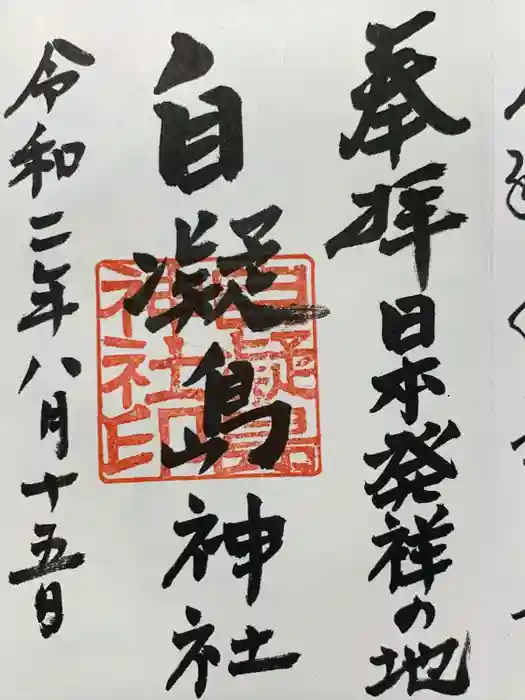 奉拝 日本発祥の地
自凝島神社
自凝島神社印
令和二年八月十五日